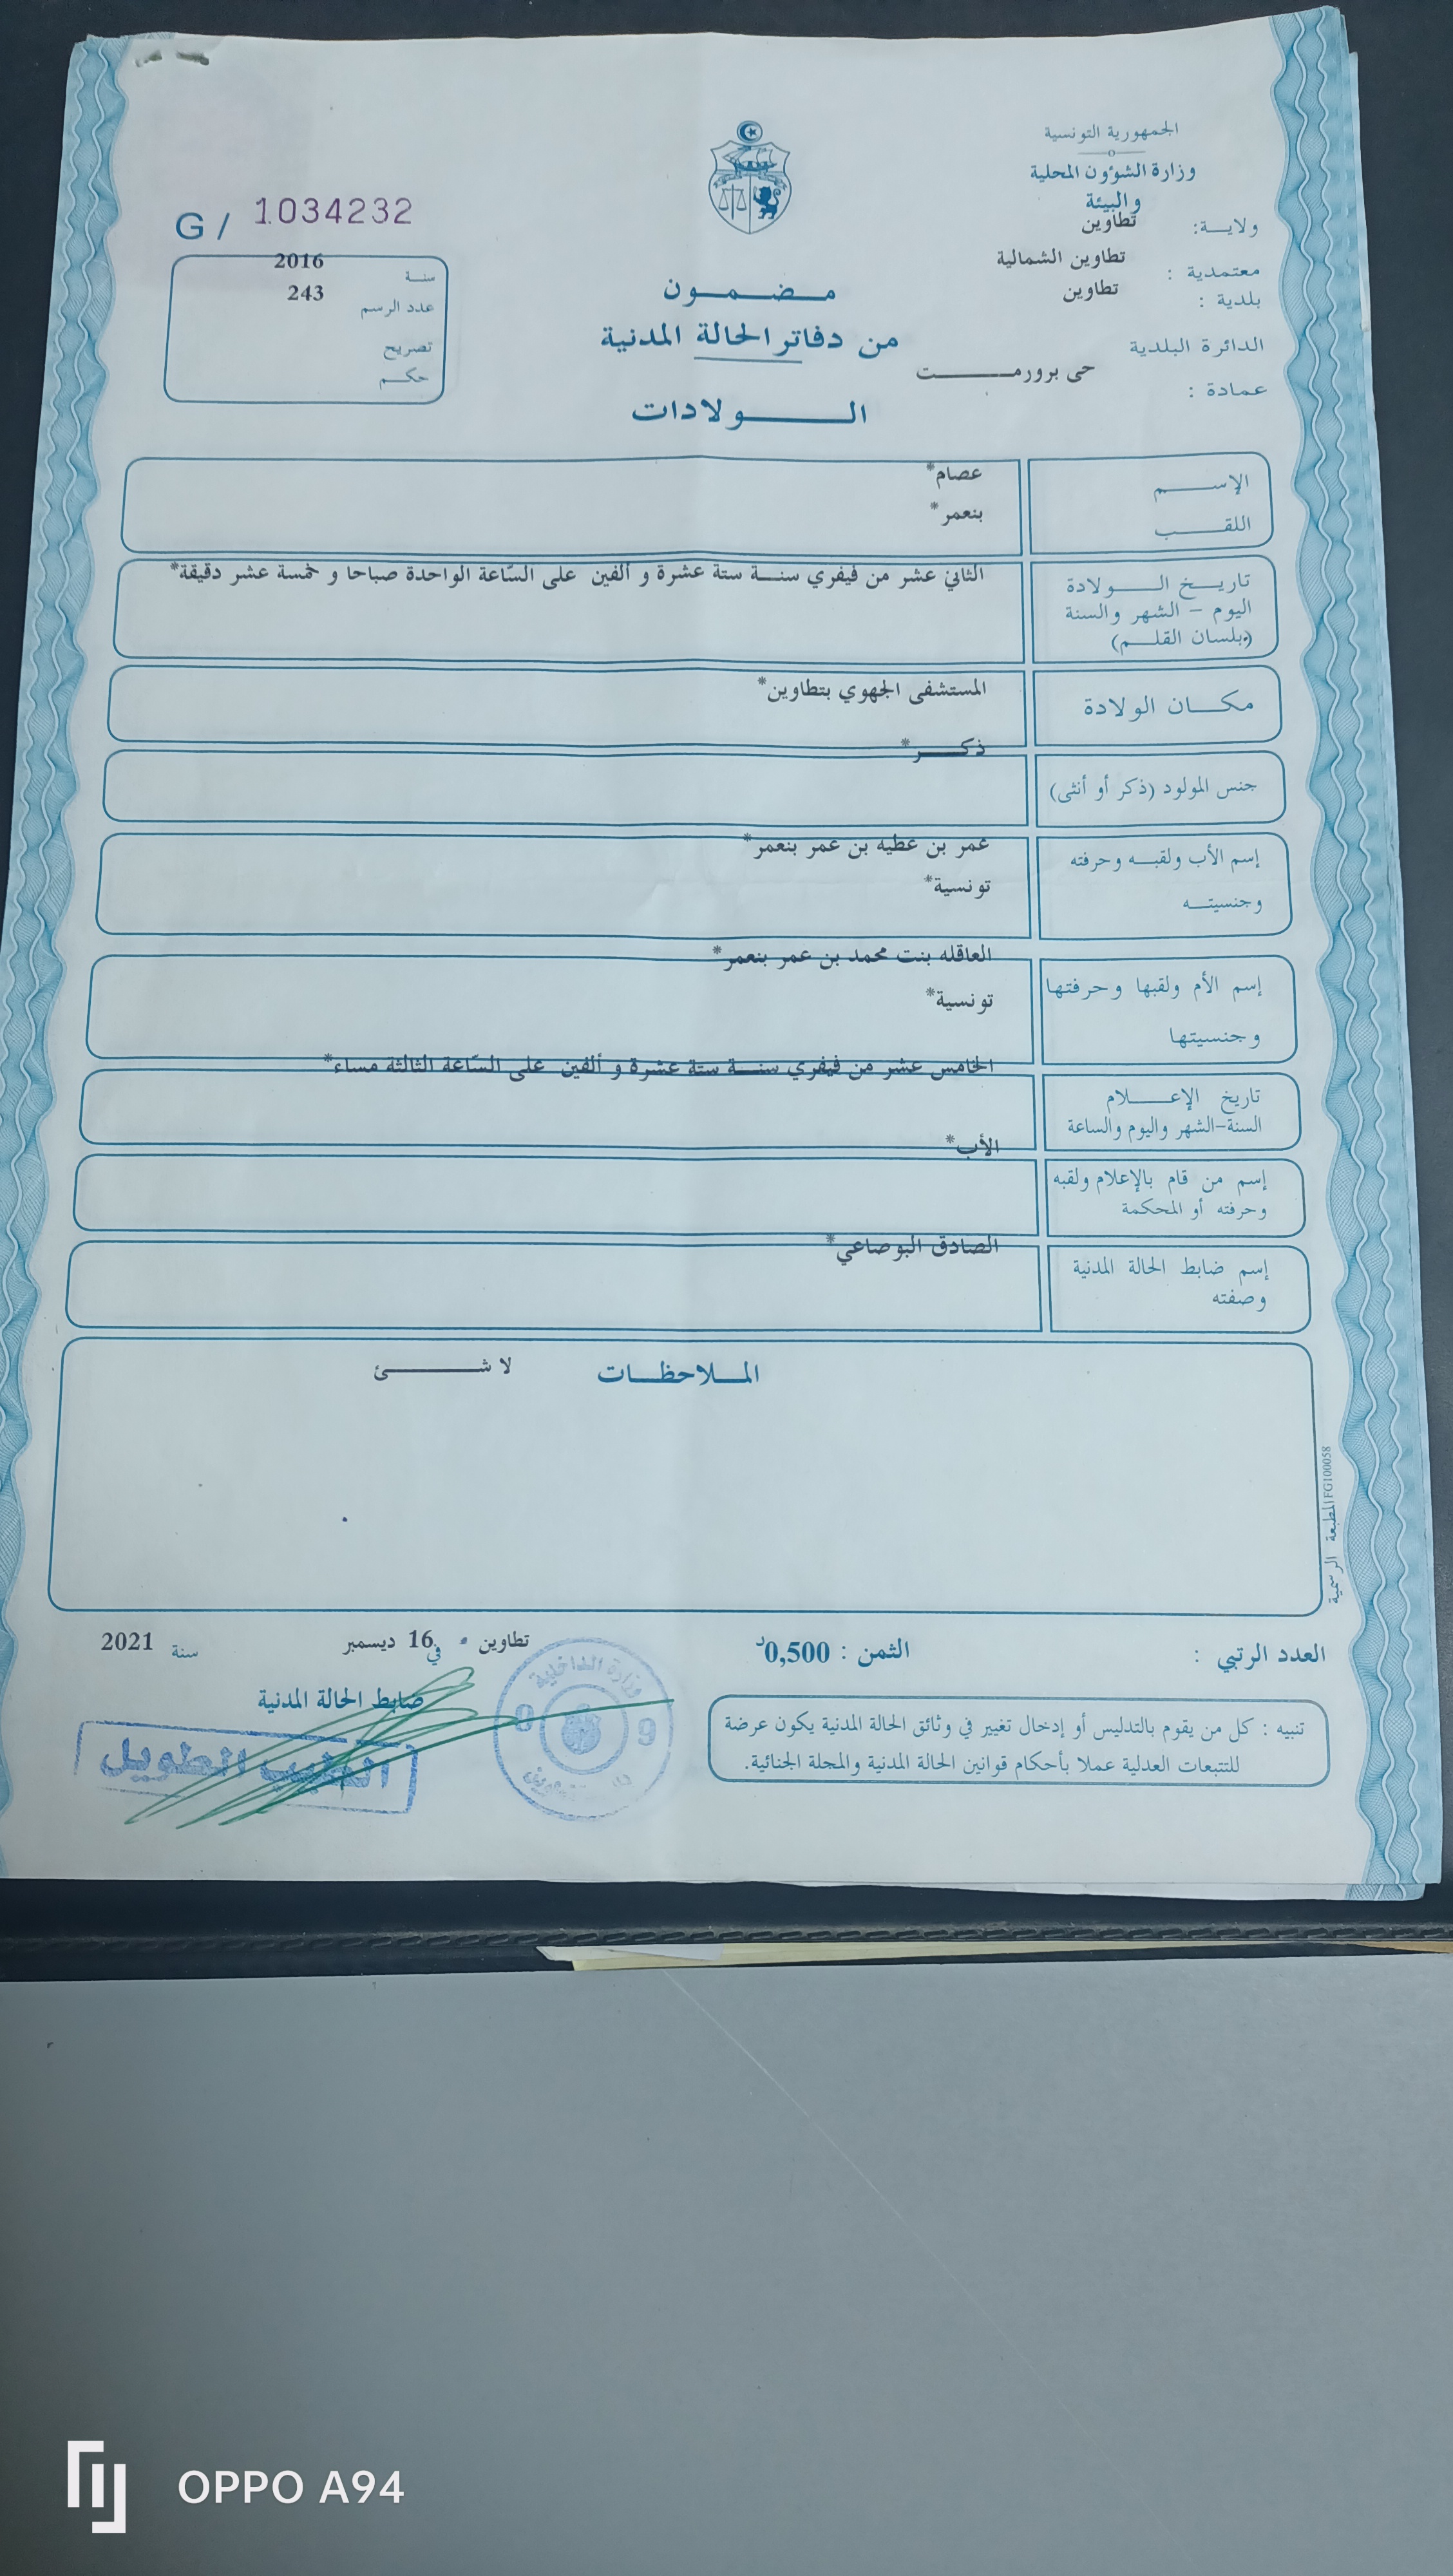 الجمهورية التونسية
وزارة الشؤون المحلية
والبيئة
ولايـــة: تطاوين
معتمدية : تطاوين الشمالية
بلدية : تطاوين
الدائرة البلدية
عمادة : حى برورمــــــت
G / 1034232
سنــة 2016
عدد الرسم 243
تصريح
حكــم
مــضــمــون
من دفاتر الحالة المدنية
الــــــولادات
الإســـــم عصام*
اللقـــــب بنعمر*
تاريــخ الـــــولادة
اليوم – الشهر والسنة
(بلسان القلـــم)
الثاني عشر من فيفري سنـــة ستة عشرة و ألفين على السّاعة الواحدة صباحا و خمسة عشر دقيقة*
مكـــان الولادة المستشفى الجهوي بتطاوين*
جنس المولود (ذكر أو أنثى) ذكـــــر*
إسم الأب ولقبــه وحرفته
وجنسيتــه
عمر بن عطيه بن عمر بنعمر*
تونسية*
إسم الأم ولقبها وحرفتها
وجنسيتها
العاقله بنت محمد بن عمر بنعمر*
تونسية*
تاريخ الإعـــــلام
السنة–الشهر واليوم والساعة
الخامس عشر من فيفري سنـــة ستة عشرة و ألفين على السّاعة الثالثة مساء*
إسم من قام بالإعلام ولقبه
وحرفته أو المحكمة
الأب*
إسم ضابط الحالة المدنية
وصفته
الصادق البوصاعي*
المــلاحظــات لا شــــــــئ
المطبعة الرسمية IFG100058
العدد الرتبي :
الثمن : 0,500د
تطاوين في 16 ديسمبر سنة 2021
ضابط الحالة المدنية
الطيب الطويل
وزارة الداخلية
9 9
تنبيه : كل من يقوم بالتدليس أو إدخال تغيير في وثائق الحالة المدنية يكون عرضة
للتتبعات العدلية عملا بأحكام قوانين الحالة المدنية والمجلة الجنائية.
OPPO A94